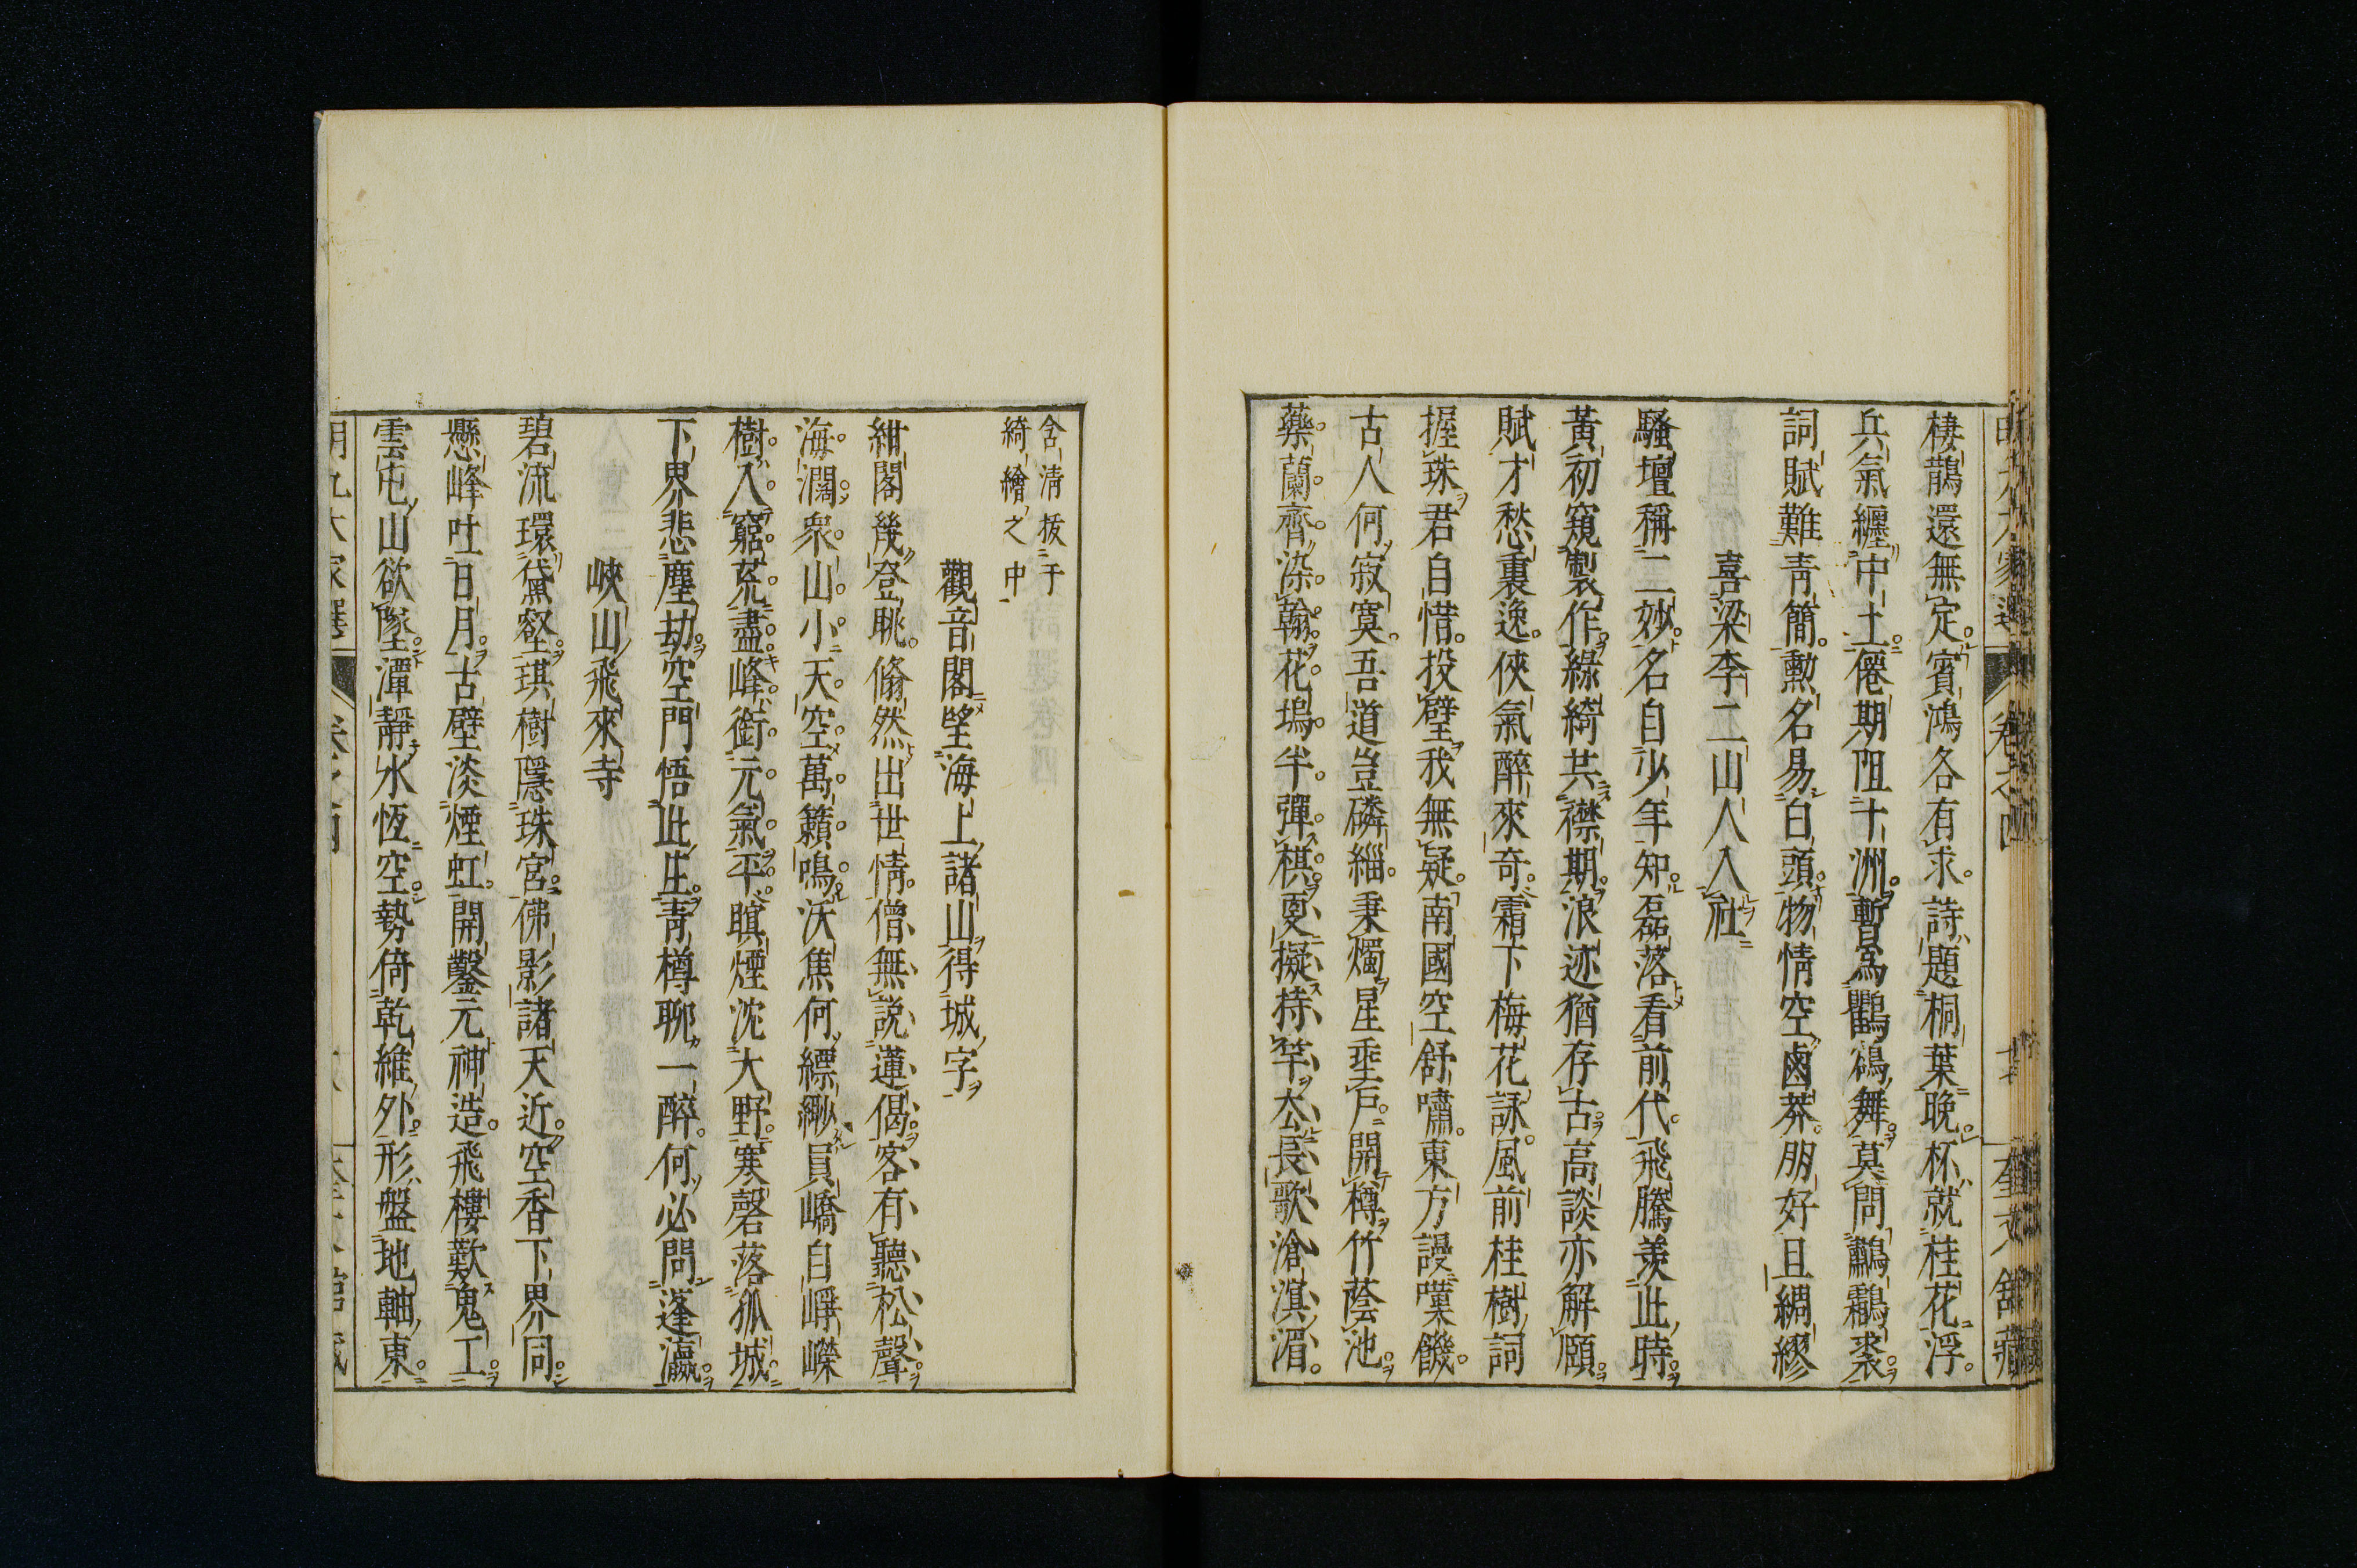 棲鵲還無定賓鴻各有求詩題桐葉晚杯就桂花浮
兵氣纏中土僊期阻十洲暫爲鸜鵒舞莫問鷫鸘裘
詞賦難青簡勲名易白頭物情空鹵莽朋好且綢繆
喜梁李二山人入社
騷壇稱二妙名自少年知磊落看前代飛騰羨此時
黃初窺製作綠綺共襟期浪迹猶存古高談亦解頤
賦才愁裏逸俠氣醉來奇霜下梅花詠風前桂樹詞
握珠君自惜投璧我無疑南國空舒嘯東方謾嘆饑
古人何寂寞吾道豈磷緇秉燭星垂戶開樽竹蔭池
藥蘭齊染翰花塢半彈棋更擬持竿去長歌滄淇湄
含清拔于
綺繪之中
觀音閣望海上諸山得城字
紺閣幾登眺翛然出世情僧無說蓮偈客有聽松聲
海濶衆山小天空萬籟鳴沃焦何縹緲員嶠自崢嶸
樹入窮荒盡峰銜元氣平暝煙沈大野寒磬落孤城
下界悲塵劫空門悟此生青樽聊一醉何必問蓬瀛
峽山飛來寺
碧流環黛壑琪樹隱珠宮佛影諸天近空香下界同
懸峰吐日月古壁淡煙虹開鑿元神造飛樓歎鬼工
雲屯山欲墜潭靜水恆空勢倚乾維外形盤地軸東